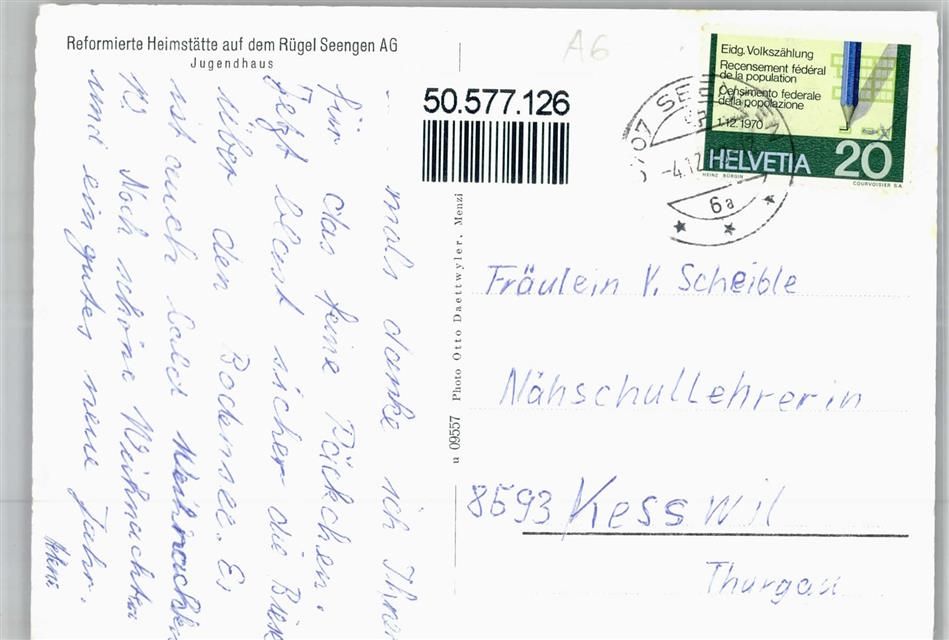 Reformierte Heimstätte auf dem Rügel Seengen AG
Jugendhaus
A6
50.577.126
Eidg. Volkszählung
Recensement fédéral
de la population
Censimento federale
della popolazione
1.12.1970
HELVETIA 20
HEINZ BÜRGIN
COURVOISIER S.A.
07 SEENGEN
-4.12
6a
u 09557 Photo Otto Daettwyler, Menzi
mals danke ich Ihnen
für das feine Päckchen.
Jetzt bläst sicher die Bise
über den Bodensee. Es
ist auch bald Weihnachten
Noch schöne Weihnachten
und ein gutes neue Jahr.
Fräulein V. Scheible
Nähschullehrerin
8593 Kesswil
Thurgau